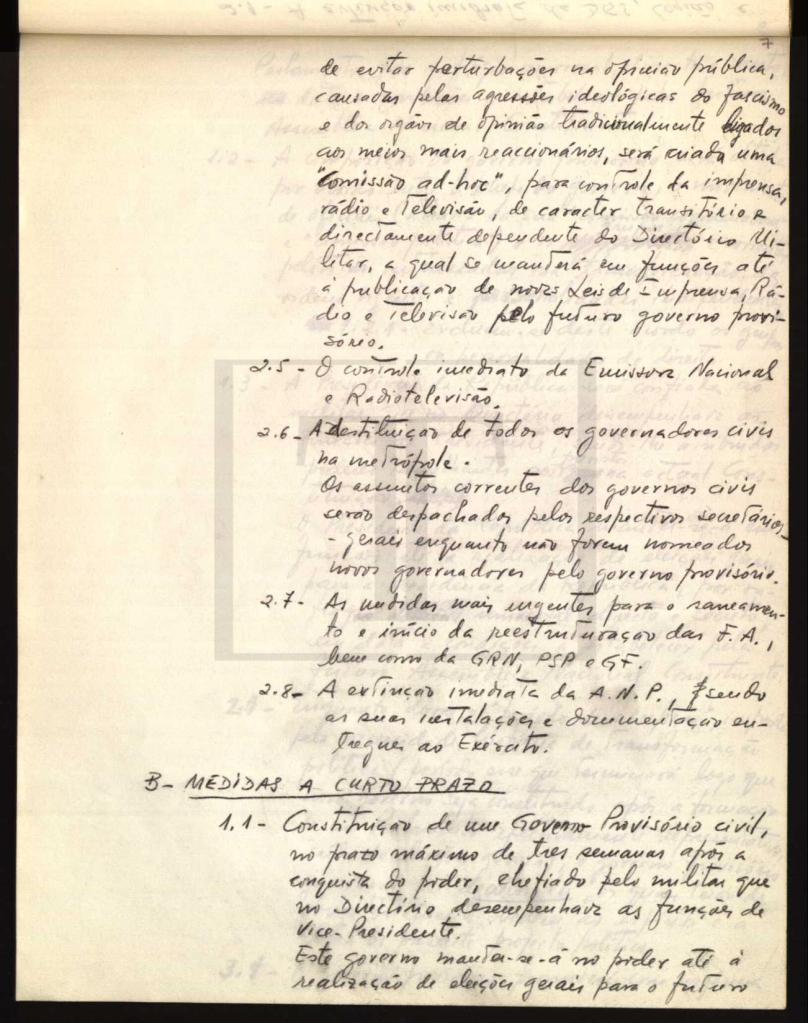 7
de evitar perturbações na opinião pública,
causadas pelas agressões ideológicas do fascismo
e dos orgãos de opinião tradicionalmente ligados
aos meios mais reaccionários, será criada uma
"comissão ad-hoc", para controle da imprensa,
rádio e Televisão, de caracter transitório e
directamente dependente do Directório Mi-
litar, a qual se manterá em funções até
a publicação de novas Leis de Imprensa, Rá-
dio e Televisão pelo futuro governo provi-
sório.
2.5 - O controle imediato da Emissora Nacional
e Radiotelevisão.
2.6 - A destituição de todos os governadores civis
na metrópole.
Os assuntos correntes dos governos civis
serão despachados pelos respectivos secretários-
-gerais enquanto não forem nomeados
novos governadores pelo governo provisório.
2.7 - As medidas mais urgentes para o saneamen-
to e início da reestruturação das F.A.,
bem como da GRN, PSP e GF.
2.8 - A extinção imediata da A.N.P., sendo
as suas instalações e documentação en-
tregues ao Exército.
B - MEDIDAS A CURTO PRAZO
1.1 - Constituição de um Governo Provisório civil,
no prazo máximo de tres semanas após a
conquista do poder, chefiado pelo militar que
no Directório desempenhava as funções de
Vice-Presidente.
Este governo manter-se-á no poder até à
realização de eleições gerais para o futuro